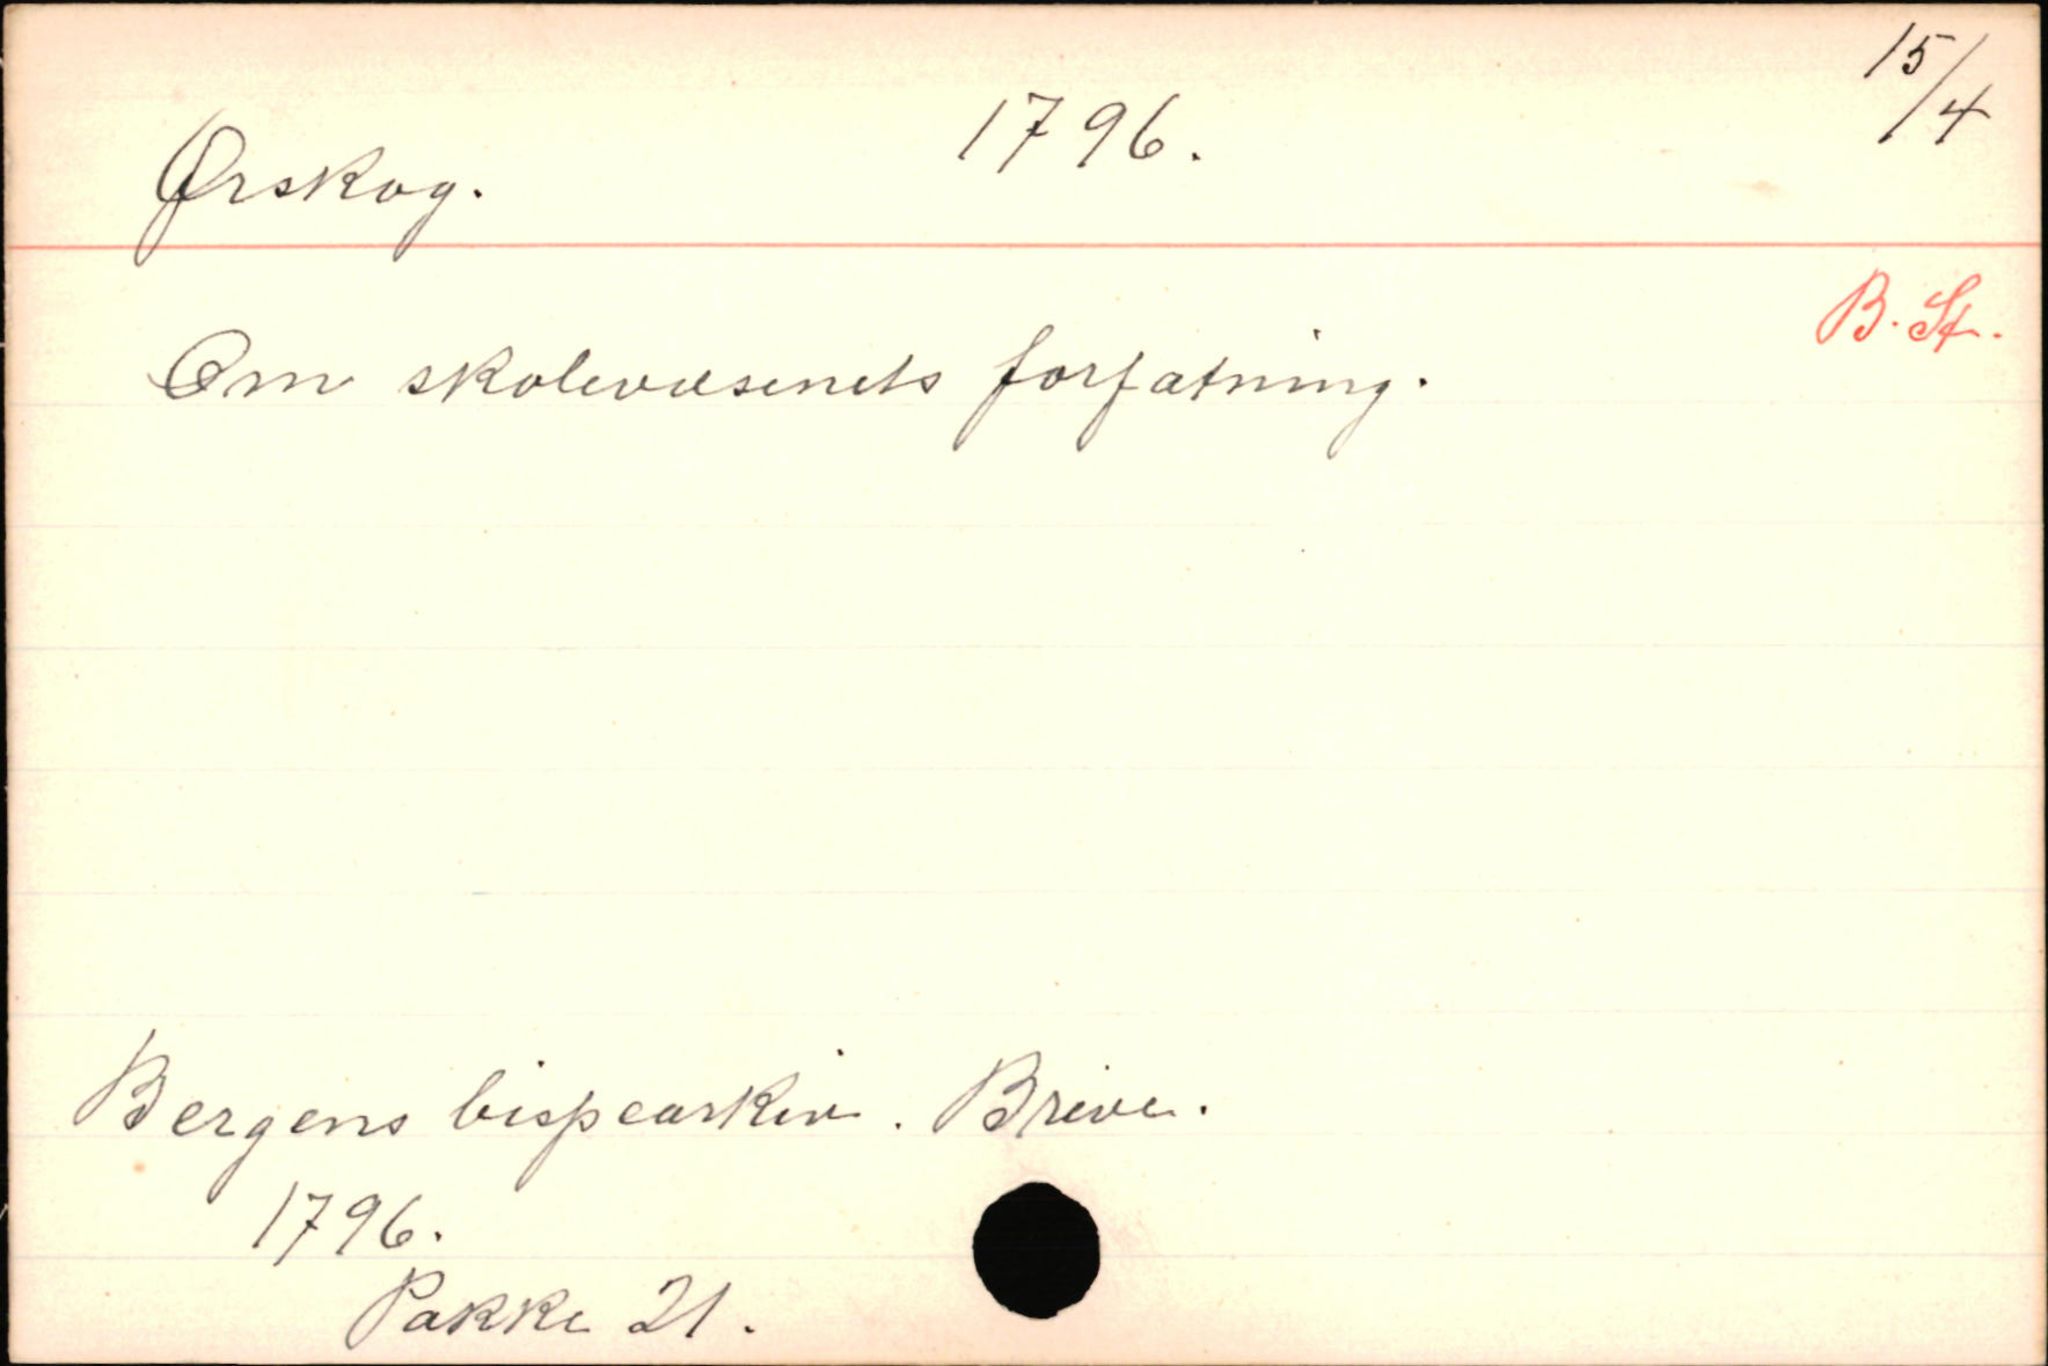 15/4
Ørskog. 1796.
B. St.
Om skolevæsenets forfatning.
Bergens bispearkiv. Breve.
1796.
Pakke 21.